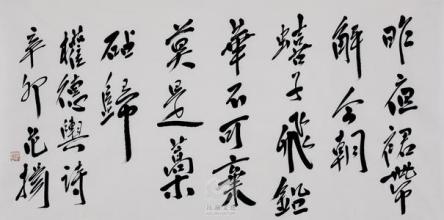 昨夜裙帶
解今朝
蟢子飛鉛
華不可棄
莫是藁
砧歸
權德輿詩
辛卯范揚